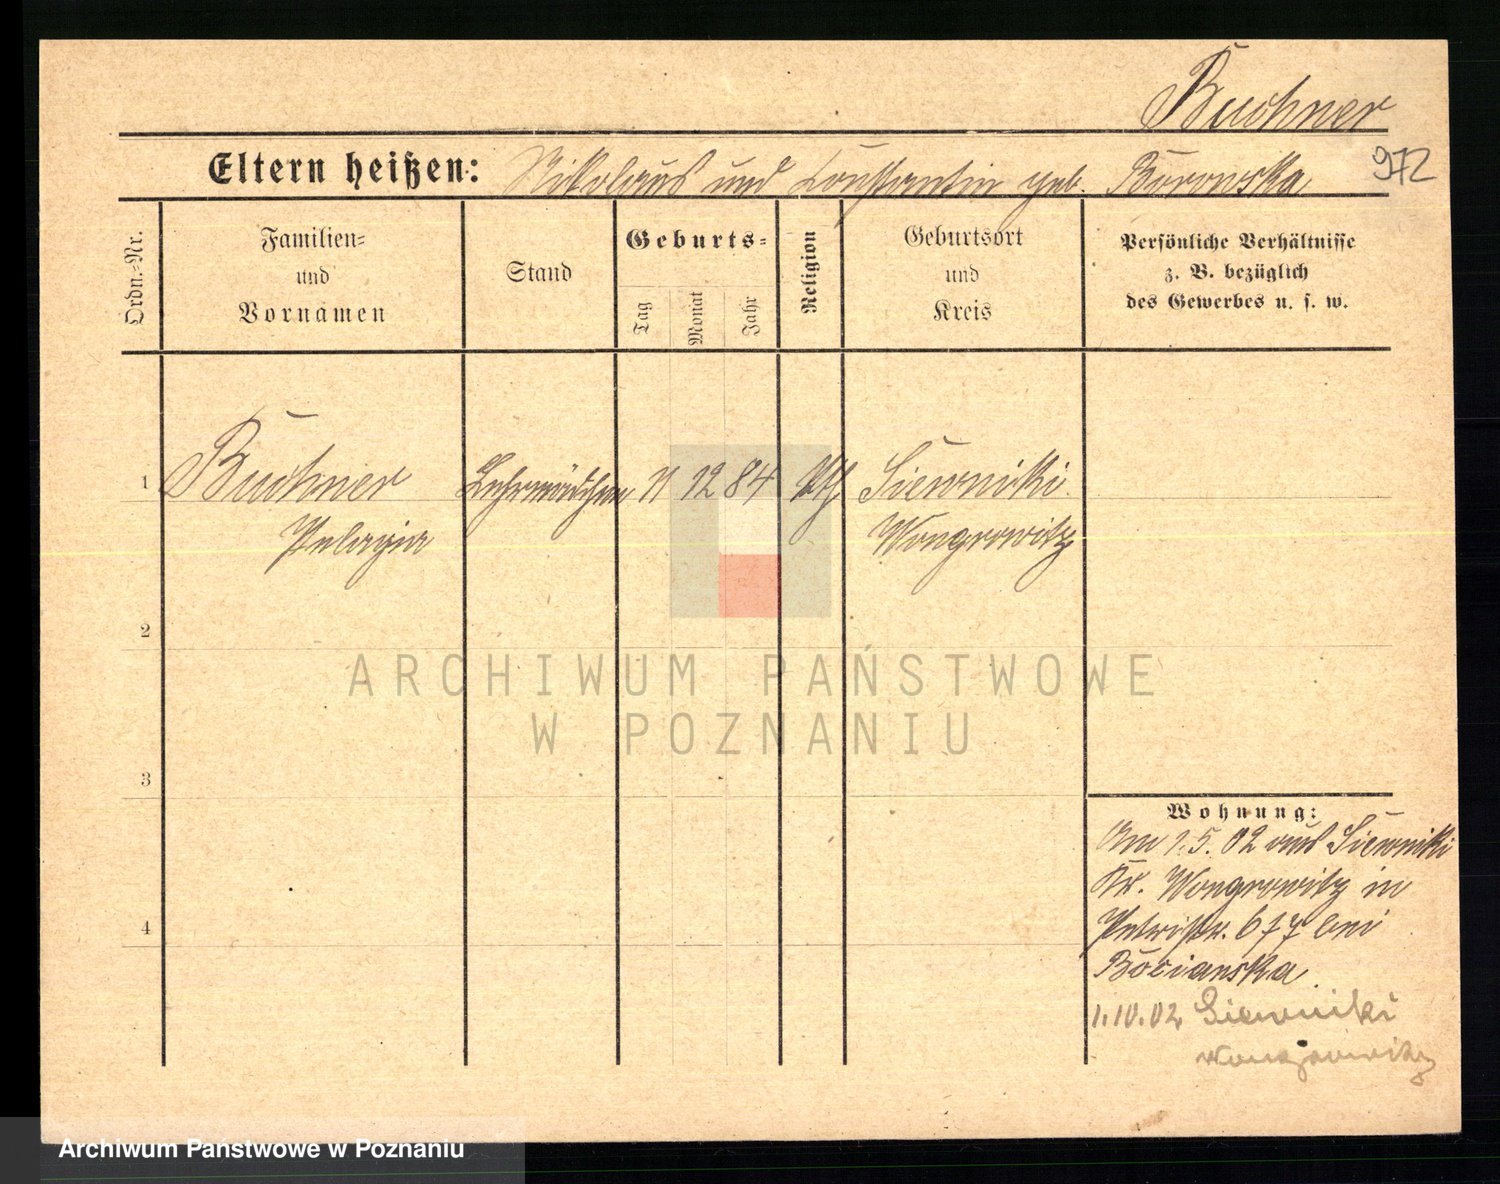 Buchner
Eltern heißen: Nikolaus und Constantin geb. Borowska 972
Ordn.-Nr.
Familien-
und
Vornamen
Stand
Geburts-
Tag
Monat
Jahr
Religion
Geburtsort
und
Kreis
Persönliche Verhältnisse
z. B. bezüglich
des Gewerbes u. s. w.
1 Buchner Lehrmädchen 11 12 84 kth Siernniki
Pelagia Wongrowitz
2
3
4
Wohnung:
Am 1.5.02 aus Siernniki
Kr. Wongrowitz in
Petristr. 6 bei
Bocianska.
1.10.02 Siernniki
Wongrowitz
ARCHIWUM PAŃSTWOWE
W POZNANIU
Archiwum Państwowe w Poznaniu